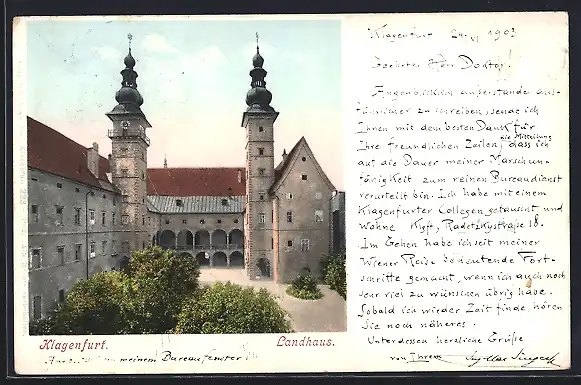 Klagenfurt 24. VI 1903
Geehrter Herr Doktor!
Augenblicklich außerstande aus-
führlicher zu schreiben, sende ich
Ihnen mit dem besten Dank für
Ihre freundlichen Zeilen, die Mitteilung, dass ich
auf die Dauer meiner Marschun-
fähigkeit zum reinen Bureaudienst
verurteilt bin. Ich habe mit einem
Klagenfurter Collegen getauscht und
wohne Klgft, Radetzkystraße 18.
Im Gehen habe ich seit meiner
Wiener Reise bedeutende Fort-
schritte gemacht, wenn ich auch noch
sehr viel zu wünschen übrig habe.
Sobald ich etwas Zeit finde, hören
Sie noch näheres.
Unterdessen herzliche Grüße
von Ihrem
Klagenfurt.
Landhaus.
meinem Bureaufenster